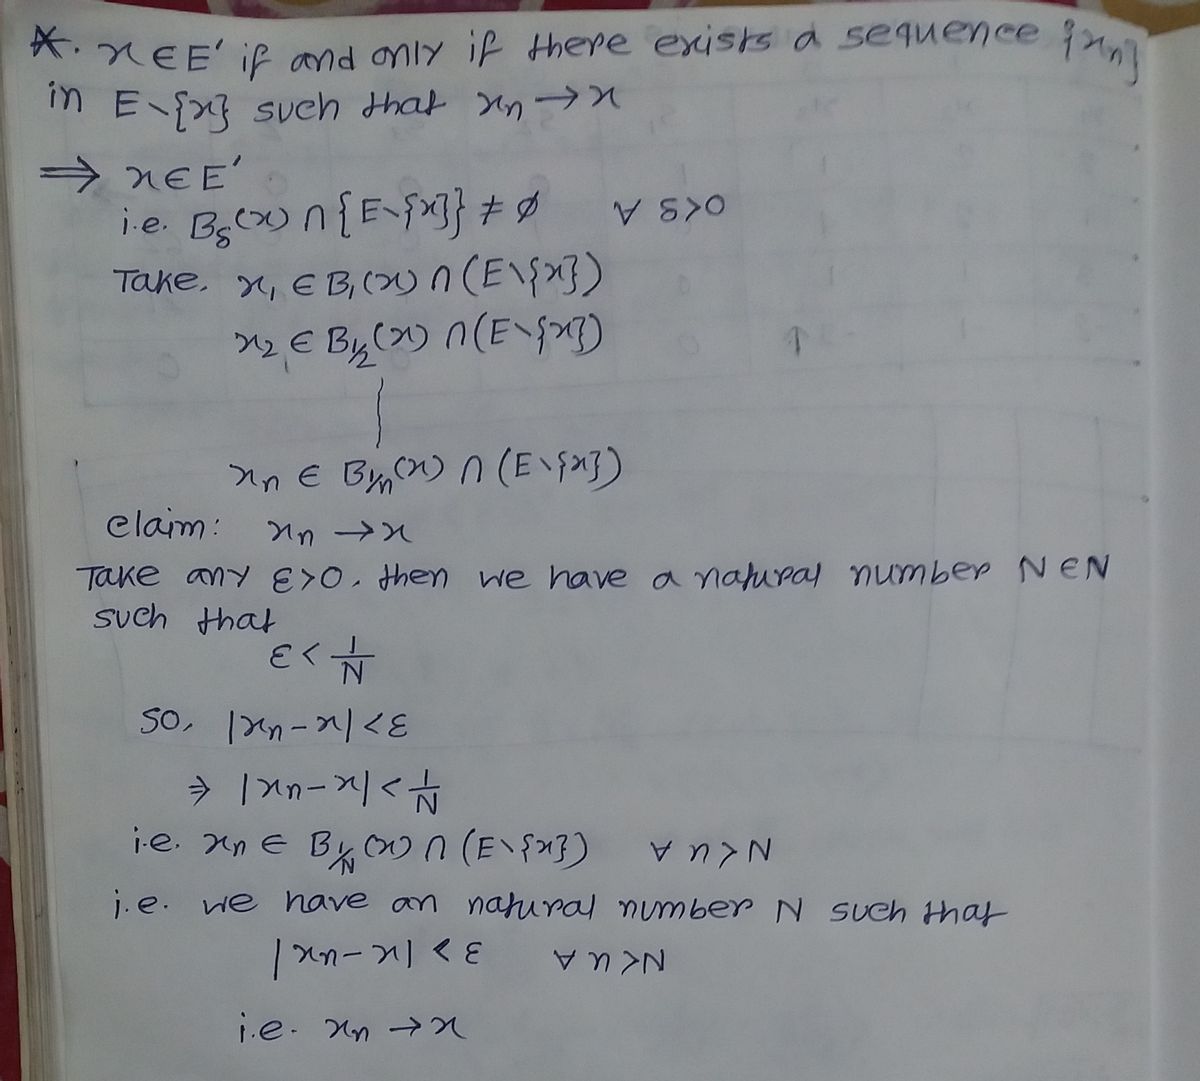 *. x ∈ E' if and only if there exists a sequence {xₙ}
in E∖{x} such that xₙ → x
⇒ x ∈ E'
i.e. B_δ(x) ∩ {E∖{x}} ≠ ∅ ∀ δ>0
Take, x₁ ∈ B₁(x) ∩ (E∖{x})
x₂ ∈ B_{1/2}(x) ∩ (E∖{x})
|
xₙ ∈ B_{1/n}(x) ∩ (E∖{x})
claim: xₙ → x
Take any ε>0, then we have a natural number N ∈ N
such that
ε < 1/N
so, |xₙ-x| < ε
⇒ |xₙ-x| < 1/N
i.e. xₙ ∈ B_{1/N}(x) ∩ (E∖{x}) ∀ n>N
i.e. we have an natural number N such that
|xₙ-x| < ε ∀ n>N
i.e. xₙ → x